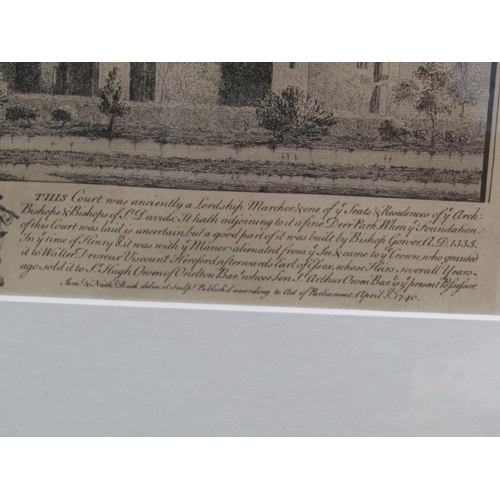 THIS Court was anciently a Lordship Marcher, & one of yͤ Seats & Residences of yͤ Arch-
Bishops & Bishops of Sͭ Davids. It hath adjoining to it a fine Deer Park. When yͤ Foundation
of this Court was laid is uncertain, but a good part of it was built by Bishop Gower, A.D. 1335.
In yͤ time of Henry 8. it was with yͤ Manor alienated from yͤ See, & came to yͤ Crown, who granted
it to Walter Devreux Viscount Hereford, afterwards Earl of Essex, whose Heirs severall Years
ago, sold it to Sͬ Hugh Owen of Orielton Barͭ whose Son Sͬ Arthur Owen Barͭ is yͤ present Possessor.
Samˡ & Nathˡ Buck delin: et Sculpͭ Publish'd according to Act of Parliament, April 5. 1740.